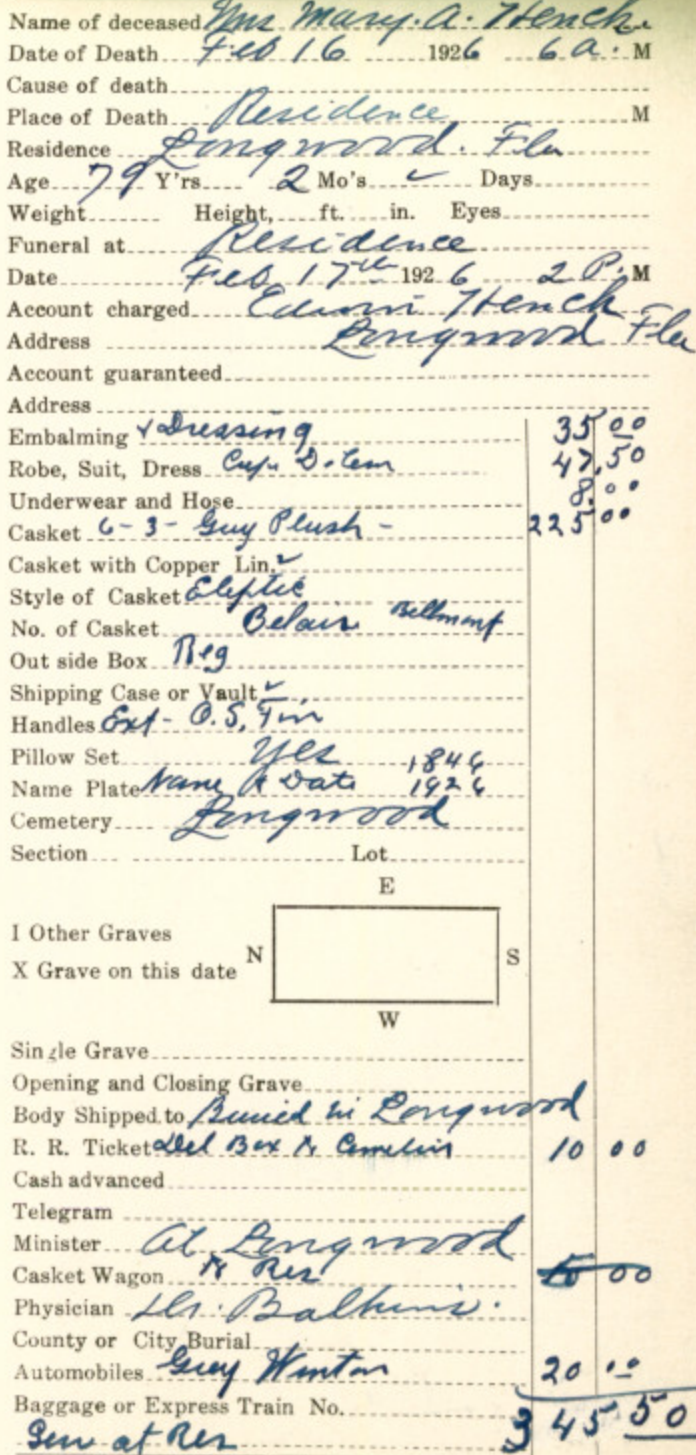 Name of deceased Mrs Mary. A. Hench.
Date of Death Feb 16 1926 6 a. M
Cause of death
Place of Death Residence M
Residence Longwood. Fla
Age 79 Y'rs 2 Mo's ✓ Days
Weight Height, ft. in. Eyes
Funeral at Residence
Date Feb 17th 1926 2 P. M
Account charged Edwin Hench
Address Longwood Fla
Account guaranteed
Address
Embalming & Dressing 35 00
Robe, Suit, Dress 47.50
Underwear and Hose 8.00
Casket 6-3- Grey Plush - 225 00
Casket with Copper Lin. ✓
Style of Casket Eleptic
No. of Casket Belair Bellmont
Out side Box Reg
Shipping Case or Vault ✓
Handles Ext- O.S.
Pillow Set Yes 1846
Name Plate Name & Date 1926
Cemetery Longwood
Section Lot
E
I Other Graves
N S
X Grave on this date
W
Single Grave
Opening and Closing Grave
Body Shipped to Buried in Longwood
R. R. Ticket Del Box to 10 00
Cash advanced
Telegram
Minister at Longwood
Casket Wagon to Res 00
Physician Dr.
County or City Burial
Automobiles Grey Winton 20 00
Baggage or Express Train No. 345 50
Serv at Res